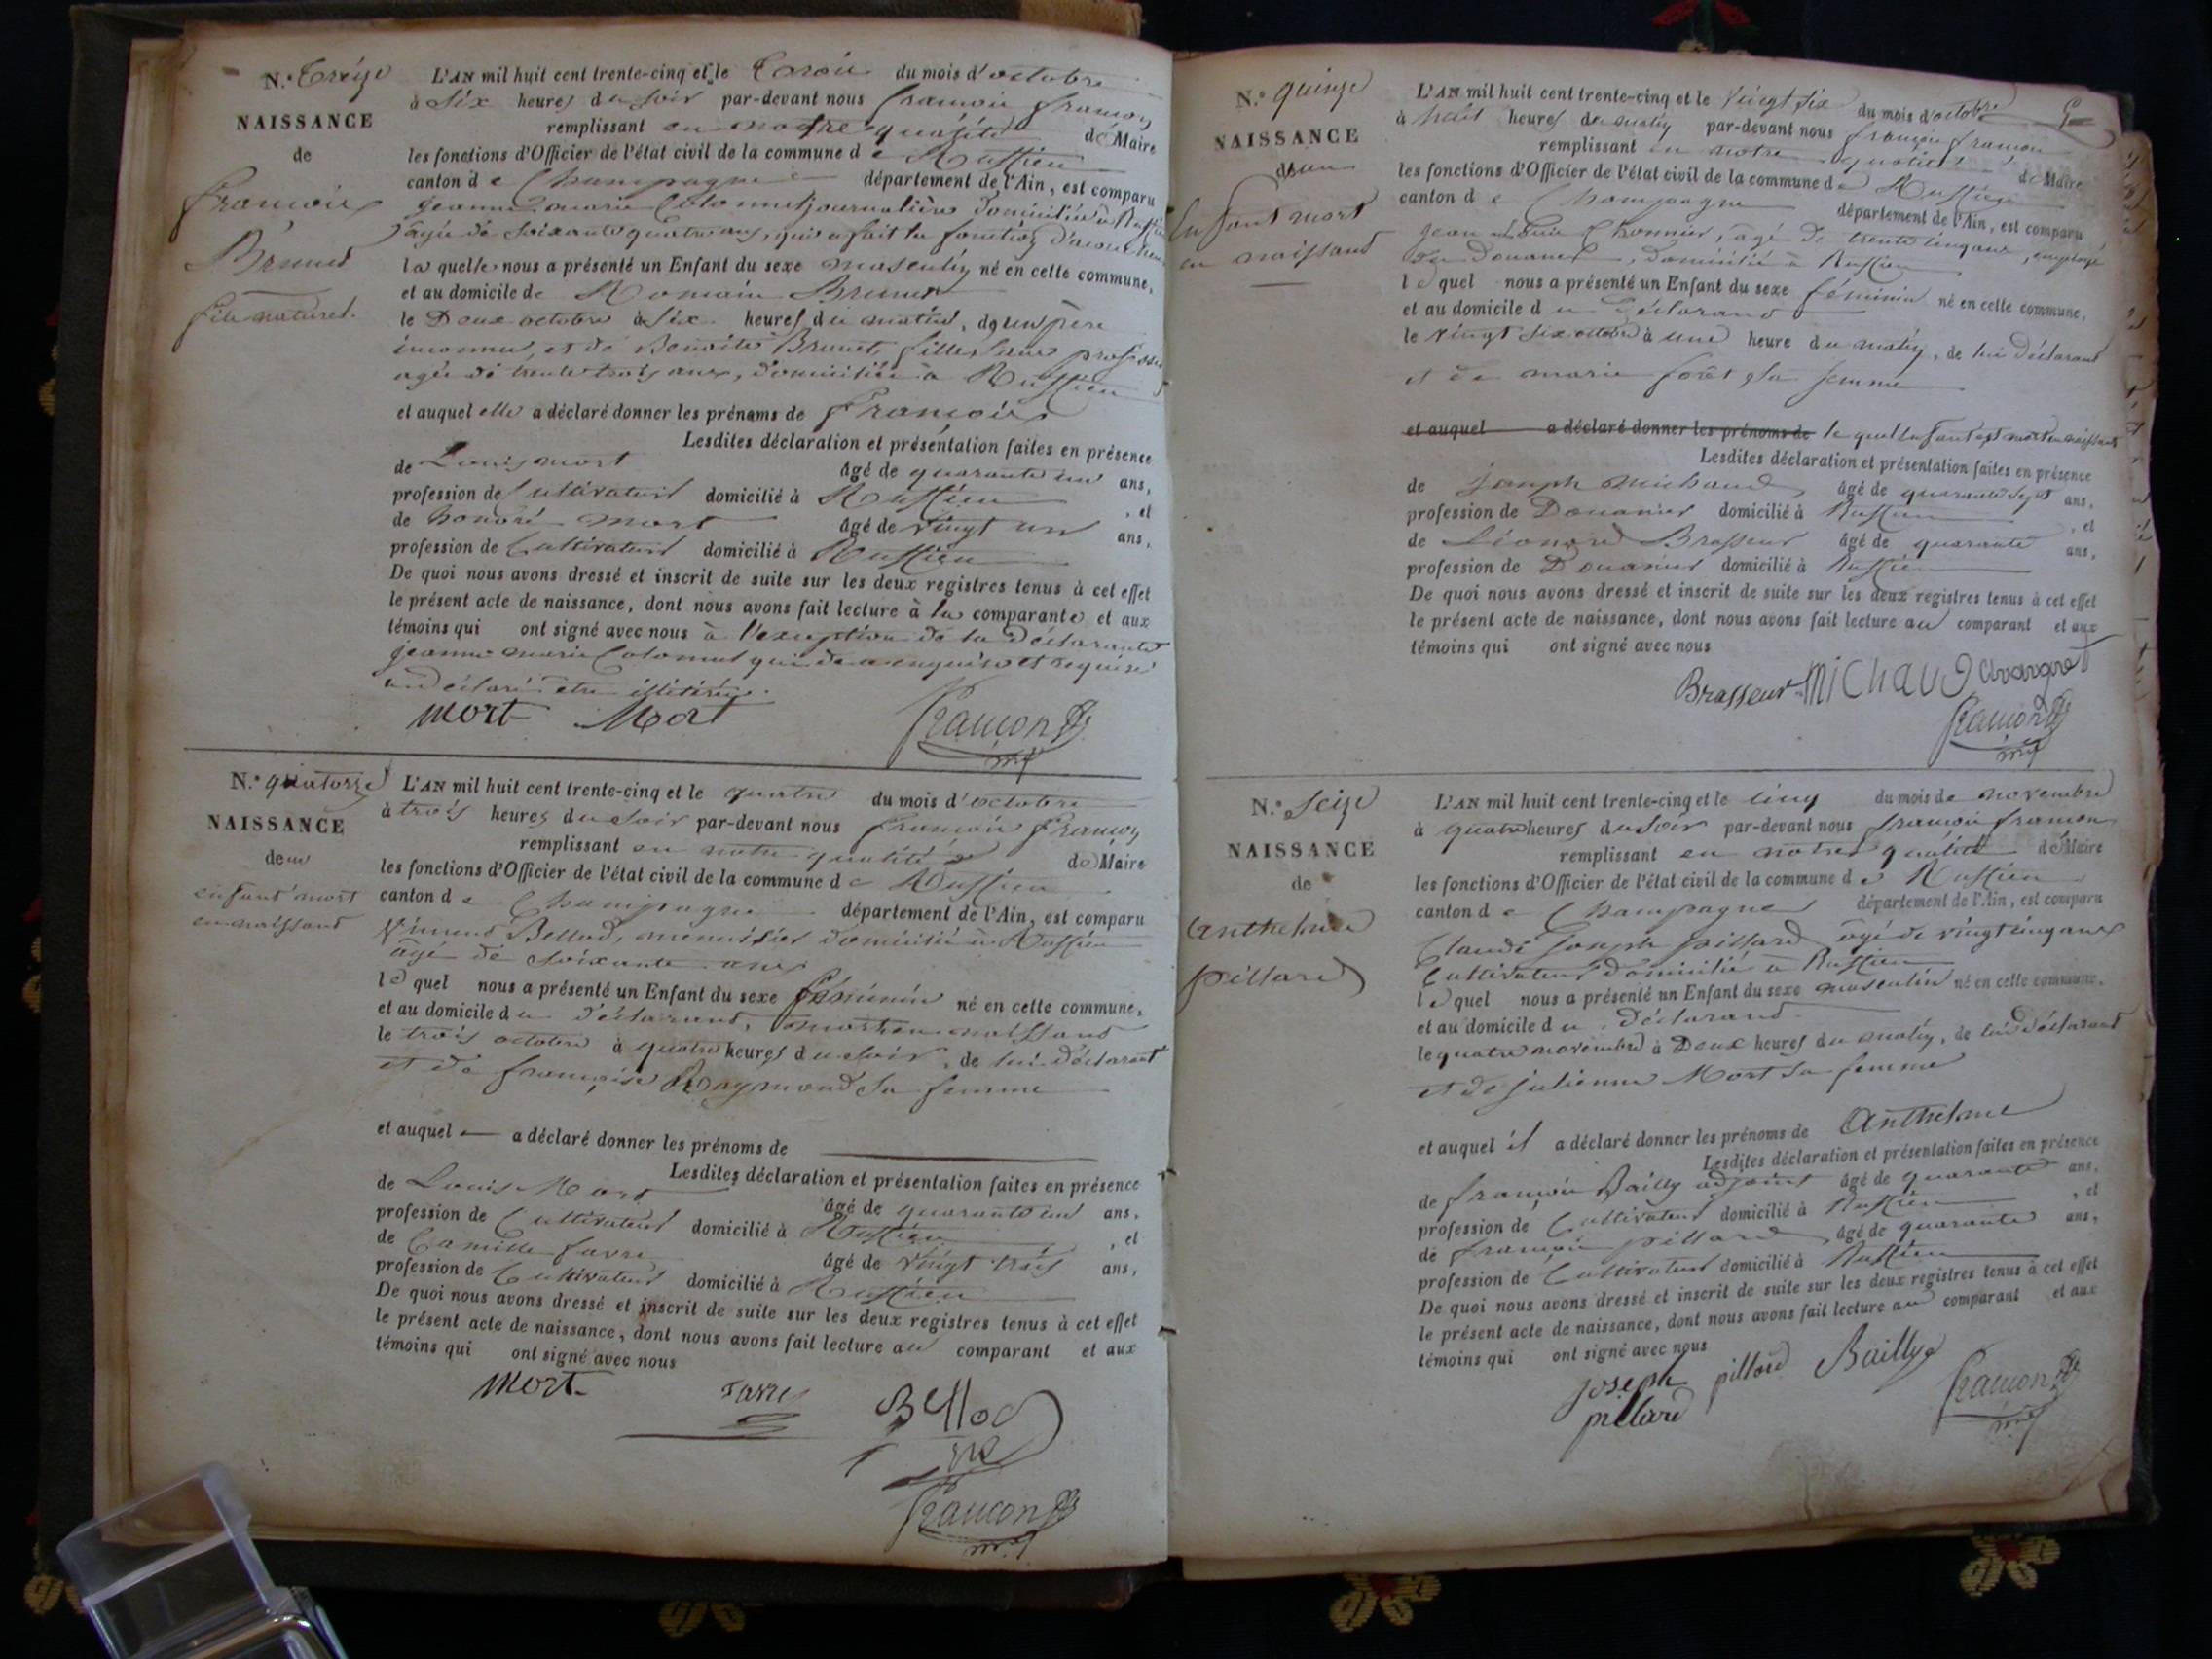 N.º Treize
NAISSANCE
de
François
Brunet
fils naturel.
L'AN mil huit cent trente-cinq et le trois du mois d'octobre
à six heures du soir par-devant nous françois francon
remplissant en notre qualité de Maire
les fonctions d'Officier de l'état civil de la commune de Ruffieu
canton de Champagne département de l'Ain, est comparu
jeanne marie Colomet journalière domiciliée à Ruffieu
âgée de soixante quatre ans, qui a fait la fonction d'accoucheuse
laquelle nous a présenté un Enfant du sexe masculin né en cette commune,
et au domicile de Romain Brunet
le Deux octobre à six heures du matin, d'un père
inconnu, et de Benoite Brunet, fille sans profession
agée de trente trois ans, domiciliée à Ruffieu
et auquel elle a déclaré donner les prénoms de François
Lesdites déclaration et présentation faites en présence
de Louis mort âgé de quarante un ans,
profession de Cultivateur domicilié à Ruffieu , et
de honoré mort âgé de vingt un ans,
profession de Cultivateur domicilié à Ruffieu
De quoi nous avons dressé et inscrit de suite sur les deux registres tenus à cet effet
le présent acte de naissance, dont nous avons fait lecture à la comparante et aux
témoins qui ont signé avec nous à l'exception de la déclarante
jeanne marie Colomet qui de ce enquise et requise
a déclaré être illitérée.
mort Mort francon
N.º quatorze
NAISSANCE
de un
enfant mort
en naissant
L'AN mil huit cent trente-cinq et le quatre du mois d'octobre
à trois heures du soir par-devant nous françois francon
remplissant en notre qualité de Maire
les fonctions d'Officier de l'état civil de la commune de Ruffieu
canton de Champagne département de l'Ain, est comparu
Vincent Bellod, menuisier domicilié à Ruffieu
âgé de soixante ans
lequel nous a présenté un Enfant du sexe féminin né en cette commune,
et au domicile du déclarant, mort en naissant
le trois octobre à quatre heures du soir, de lui déclarant
et de françoise Raymond sa femme
et auquel a déclaré donner les prénoms de
Lesdites déclaration et présentation faites en présence
de Louis Mort âgé de quarante un ans,
profession de Cultivateur domicilié à Ruffieu , et
de Camille favre âgé de vingt trois ans,
profession de Cultivateur domicilié à Ruffieu
De quoi nous avons dressé et inscrit de suite sur les deux registres tenus à cet effet
le présent acte de naissance, dont nous avons fait lecture au comparant et aux
témoins qui ont signé avec nous
mort favre Bellod
francon
N.º quinze
NAISSANCE
de un
Enfant mort
en naissant
L'AN mil huit cent trente-cinq et le vingt six du mois d'octobre
à huit heures du matin par-devant nous françois francon
remplissant en notre qualité de Maire
les fonctions d'Officier de l'état civil de la commune de Ruffieu
canton de Champagne département de l'Ain, est comparu
jean Louis âgé de trente cinq ans, employé
des Douanes, domicilié à Ruffieu
lequel nous a présenté un Enfant du sexe féminin né en cette commune,
et au domicile du déclarant
le vingt six octobre à une heure du matin, de lui déclarant
et de marie forêt sa femme
et auquel a déclaré donner les prénoms de lequel enfant est mort en naissant
Lesdites déclaration et présentation faites en présence
de joseph michaud âgé de quarante sept ans,
profession de Douanier domicilié à Ruffieu , et
de Léonard Brasseur âgé de quarante ans,
profession de Douanier domicilié à Ruffieu
De quoi nous avons dressé et inscrit de suite sur les deux registres tenus à cet effet
le présent acte de naissance, dont nous avons fait lecture au comparant et aux
témoins qui ont signé avec nous
Brasseur MiChaud
francon
N.º Seize
NAISSANCE
de
Anthelme
pillard
L'AN mil huit cent trente-cinq et le cinq du mois de novembre
à quatre heures du soir par-devant nous françois francon
remplissant en notre qualité de Maire
les fonctions d'Officier de l'état civil de la commune de Ruffieu
canton de Champagne département de l'Ain, est comparu
Claude joseph pillard âgé de vingt cinq ans
Cultivateur domicilié à Ruffieu
lequel nous a présenté un Enfant du sexe masculin né en cette commune,
et au domicile du déclarant
le quatre novembre à Deux heures du matin, de lui déclarant
et de julienne Mort sa femme
et auquel il a déclaré donner les prénoms de Anthelme
Lesdites déclaration et présentation faites en présence
de françois Bailly adjoint âgé de quarante ans,
profession de Cultivateur domicilié à Ruffieu , et
de françois pillard âgé de quarante ans,
profession de Cultivateur domicilié à Ruffieu
De quoi nous avons dressé et inscrit de suite sur les deux registres tenus à cet effet
le présent acte de naissance, dont nous avons fait lecture au comparant et aux
témoins qui ont signé avec nous
joseph pillard Bailly
pillard francon